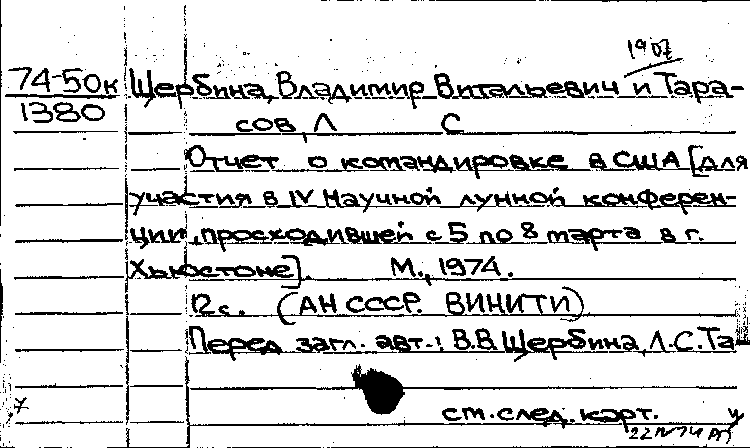 1907
74-50к Щербина, Владимир Витальевич и Тара-
1380
сов, Л С
Отчет о командировке в США [для
участия в IV Научной лунной конферен-
ции, проходившей с 5 по 8 марта в г.
Хьюстоне]. М., 1974.
12 с. (АН СССР. ВИНИТИ)
Перед загл. авт.: В.В. Щербина, Л.С. Та-
см. след. карт.